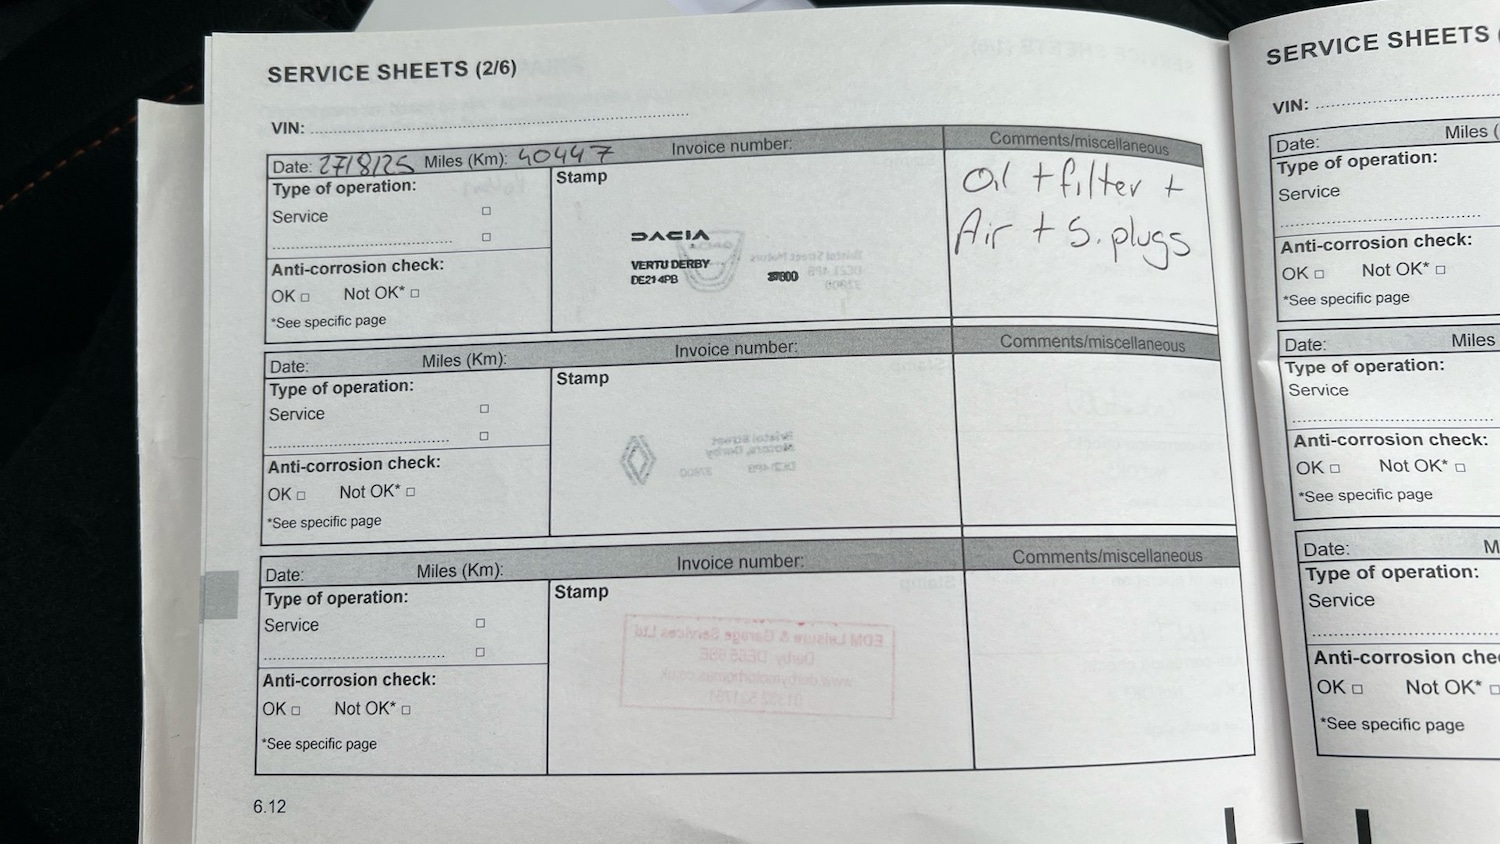 SERVICE SHEETS (2/6)
VIN:
Date: 27/8/25 Miles (Km): 40447 Invoice number: Comments/miscellaneous
Type of operation:
Service
Anti-corrosion check:
OK Not OK*
*See specific page
Stamp
DACIA
VERTU DERBY
DE21 4PB 37800
Oil + filter +
Air + S. plugs
Date: Miles (Km): Invoice number: Comments/miscellaneous
Type of operation:
Service
Anti-corrosion check:
OK Not OK*
*See specific page
Stamp
Date: Miles (Km): Invoice number: Comments/miscellaneous
Type of operation:
Service
Anti-corrosion check:
OK Not OK*
*See specific page
Stamp
6.12
SERVICE SHEETS (
VIN:
Date: Miles (
Type of operation:
Service
Anti-corrosion check:
OK Not OK*
*See specific page
Date: Miles
Type of operation:
Service
Anti-corrosion check:
OK Not OK*
*See specific page
Date: M
Type of operation:
Service
Anti-corrosion che
OK Not OK*
*See specific page